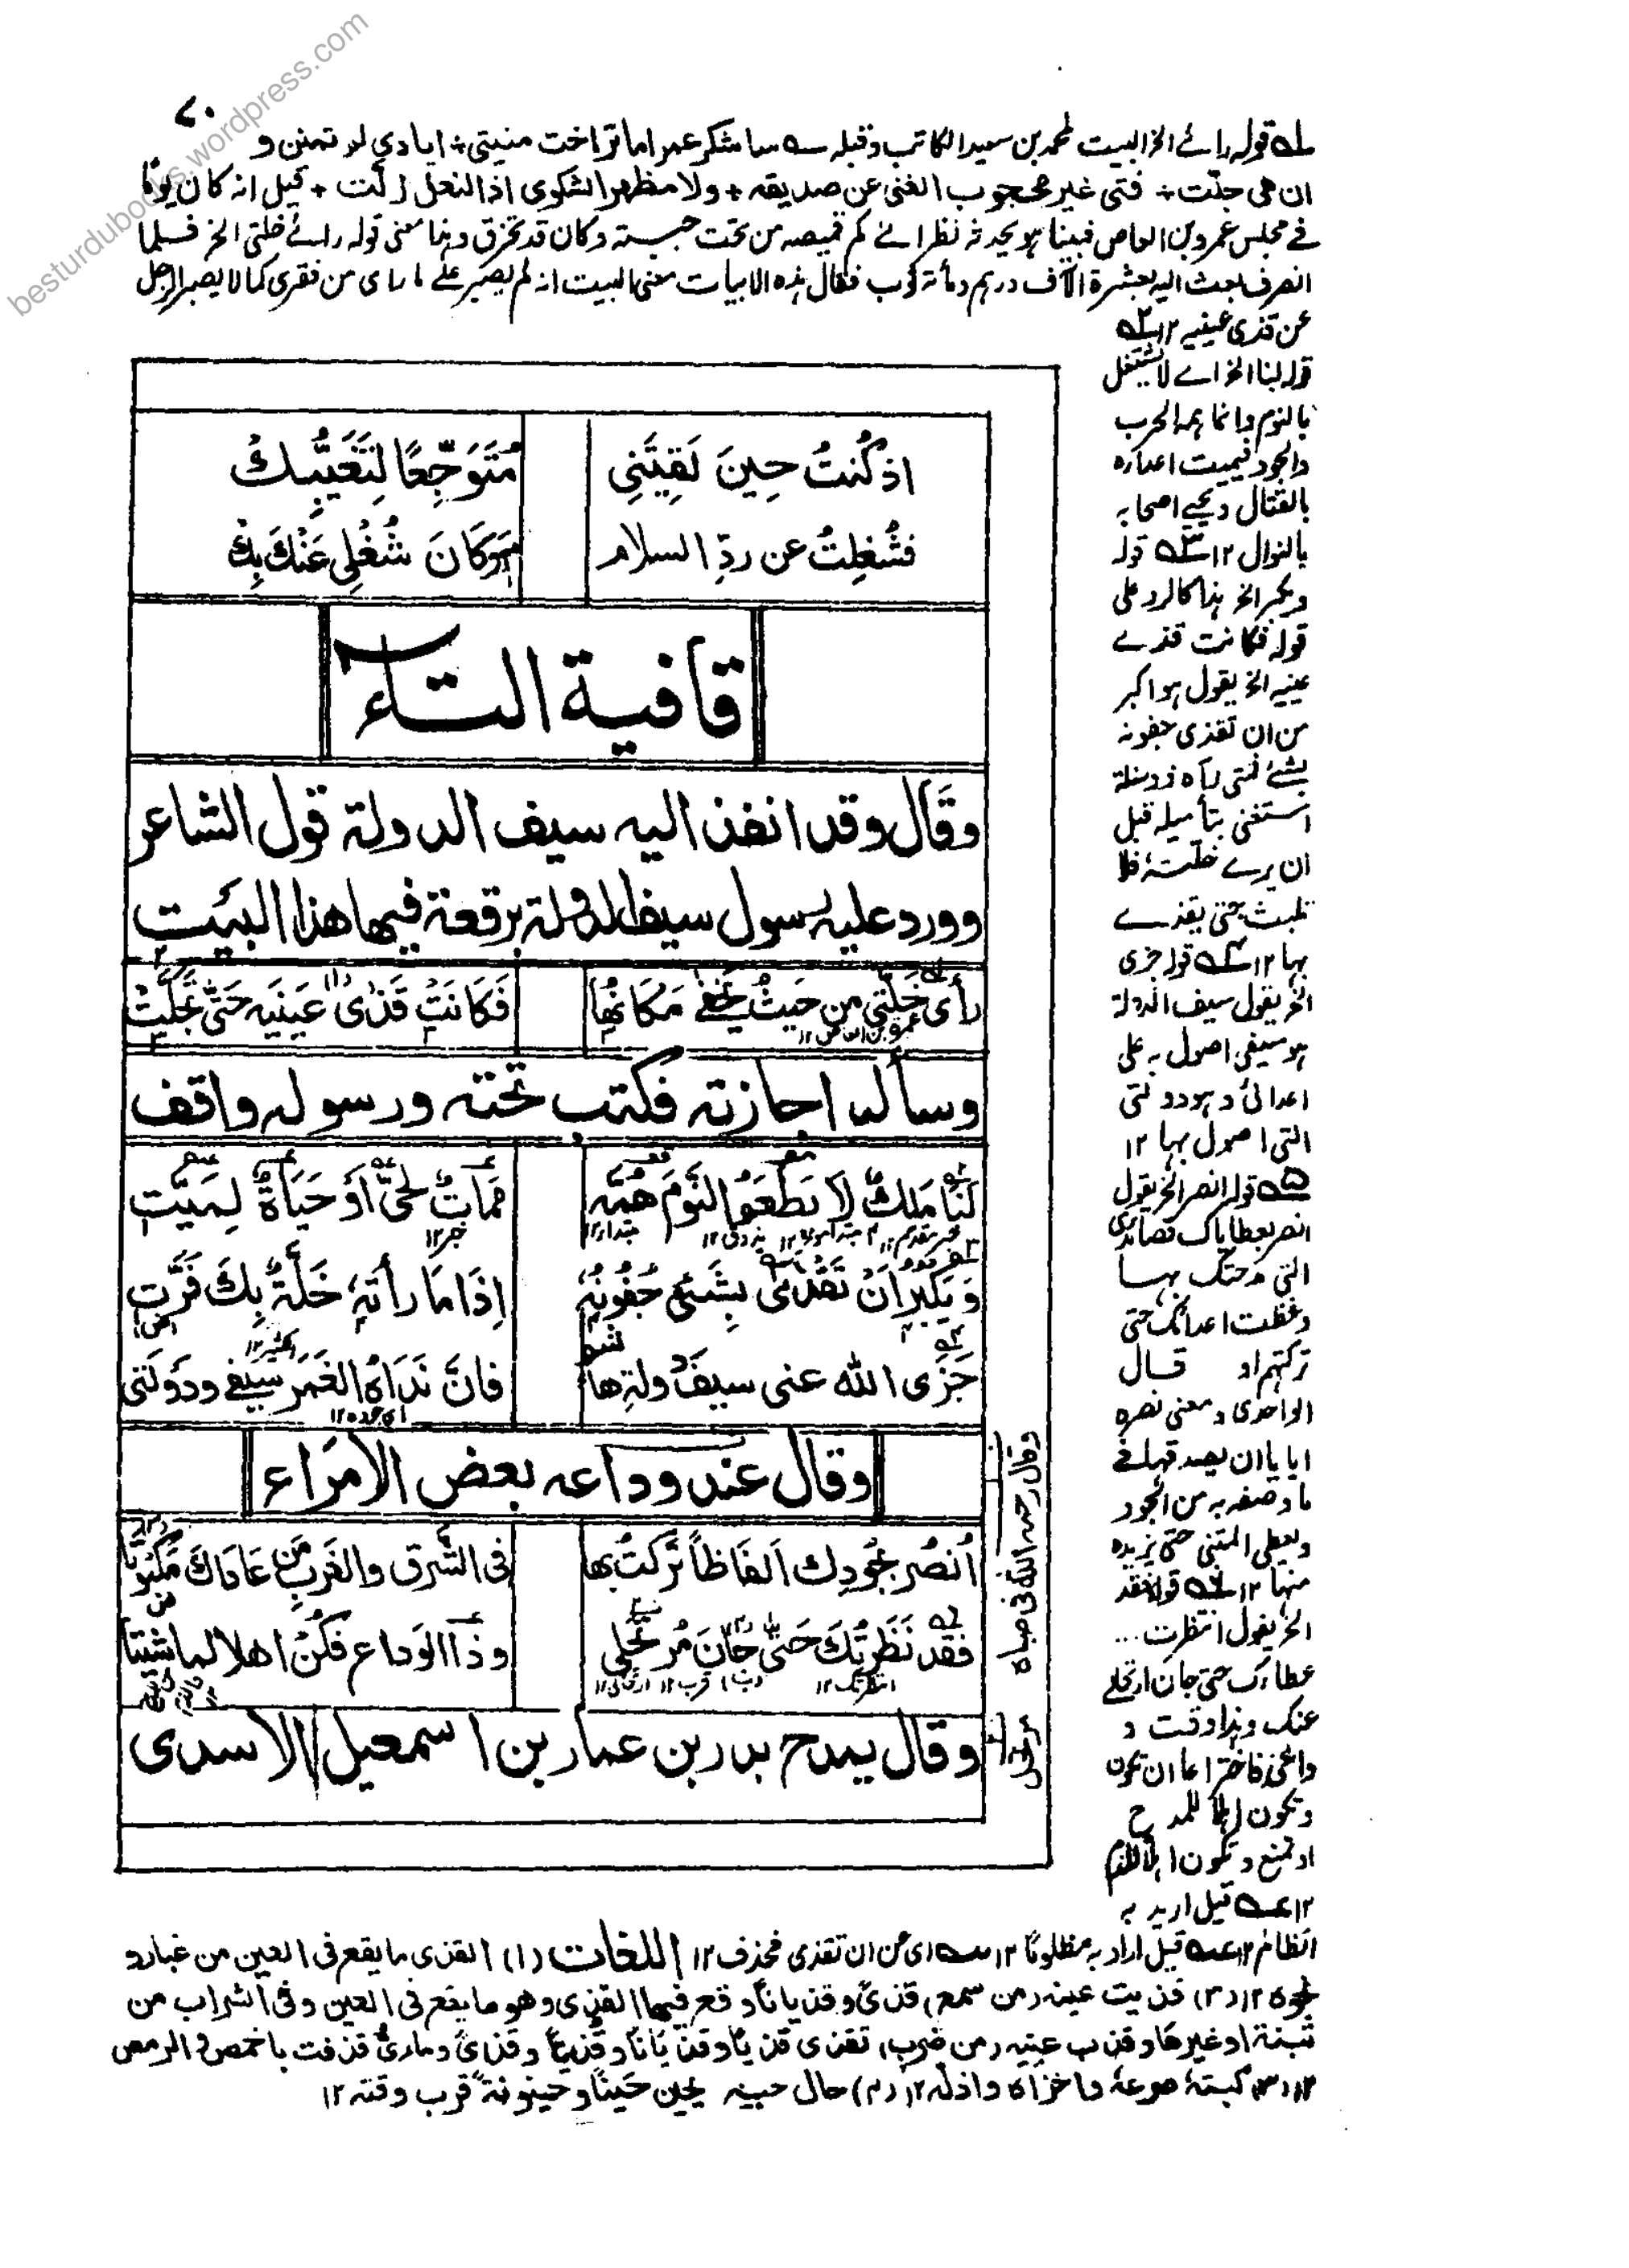 besturdubooks.wordpress.com
٧٠
١ قوله رائ الخ البيت لمحمد بن سعيد الكاتب وقبله ساشكر عمرا ما تراخت منيتى + ايادي لم تمنن و
ان هى جلّت + فتى غير محجوب الغنى عن صديقه + ولا مظهر الشكوى اذ النعل زلّت + قيل انه كان يومًا
فى مجلس عمرو بن العاص فبينا هو يحدثه نظر الى كم قميصه من تحت جبته وكان قد تخرق وهذا معنى قوله رائ خلتى الخ فلما
انصرف بعث اليه بعشرة آلاف درهم ومأته ثوب فقال هذه الابيات معنى البيت انه لم يصبر على ما راى من فقرى كما لا يصبر الرجل
عن قذى عينيه ١٢ ٢
قوله لنا الخ اے لا يشتغل
بالنوم وانما همه الحرب
والجود فيميت اعداءه
بالقتال ويحيى اصحابه
بالنوال ١٢ ٣ قوله
ويكبر الخ هذا كالرد على
قوله فكانت قذے
عينيه الخ يقول هو اكبر
من ان تقذى جفونه
بشئ فمتى رآه ذو خلة
استغنى بتأميله قبل
ان يرے خلّته فلا
تلبث حتى يقذے
بها ١٢ ٤ قوله جزى
الخ يقول سيف الدولة
هو سيفى اصول به على
اعدائى وهو دولتى
التى اصول بها ١٢
٥ قوله انصر الخ يقول
انصر بعطاياك قصائدى
التى مدحتك بها
وغظت اعدائك حتى
تركتهم او قال
الواحدى ومعنى نصره
اياها ان يصدقها فى
ما وصفه به من الجود
ويعطى المتنبى حتى يزيده
منها ١٢ ٦ قوله فقد
الخ يقول انتظرت...
عطاءك حتى حان ارتحالے
عنك وهذا وقت و
داعى فاختر اما ان تكون
وتكون اهلا للمدح
او تمنع وتكون اهلا للذم
١٢ عه قيل اريد به
اذ كُنتُ حِينَ لَقِيتَنِى مُتَوَجِّعًا لِتَغَيُّبِكْ
فشُغِلتُ عن ردِّ السلام وَكَانَ شُغْلِى عَنْكَ بِكْ
قافية التاء
وقَال وقد انفذ اليه سيف الدولة قول الشاعر
وورد عليه رسول سيف الدولة برقعة فيها هذا البيت
رأى خَلّتِى من حَيثُ يَخفى مَكَانُهَا فَكَانَتْ قَذَى عَينَيه حَتّى تجَلّتْ
عمرو بن العاص ١٢
وسأله اجازته فكتب تحته ورسوله واقف
لَنَا مَلكٌ لا يَطعَمُ النَّومَ هَمُّه مَمَاتٌ لحَىٍّ اَوْ حَيَاةٌ لِمَيِّتِ
خبر مقدم ١٢ مبتدا مؤخر ١٢ يذوق ١٢ مبتدا ١٢ خبر ١٢
وَيَكبُر اَنْ تَقْذَى بِشَىءٍ جُفُونُهُ اِذَا مَا رأتهُ خَلَّةٌ بِكَ فَرَّتِ
جَزَى الله عنى سيفَ دولةِ هاشم فانَّ نَدَاهُ الغَمْرَ سيفى ودَولَتى
الكثير ١٢ اى جوده ١٢
وقال عند وداعه بعض الأمراء
اُنصُر بجُودِك اَلفَاظاً تَركتُ بها فى الشَّرق والغَربِ مَن عَادَاكَ مكبُوتًا
فقَد نَظَرتُكَ حَتّى حَانَ مُرتَحَلِى وذَا الوَداع فكُنْ اهلا لما شيتا
انتظرتك ١٢ قرب ١٢ ارتحالى ١٢
وقال يمدح بدر بن عمار بن اسمعيل الاسدى
وقال رحمه الله فى صباه
مرتجل
الظالم ١٢ عه قيل اراد به مظلومًا ١٢ سه اى من ان تقذى فحذف ١٢ اللغات (١) القذى ما يقع فى العين من غبار و
نحوه ١٢ (٢) قذيت عينه (من سمع) قذىً وقذيانًا وقع فيها القذى وهو ما يقع فى العين وفى الشراب من
تبنة او غيرها وقذت عينه (من ضرب) تقذى قذيًا وقذيانًا وقُذِيًّا وقذىً قذفت بالغمص والرمص
١٢ (٣) كبته صرعه واخزاه واذله ١٢ (٤) حان حينه يحين حَينًا وحينونةً قرب وقته ١٢